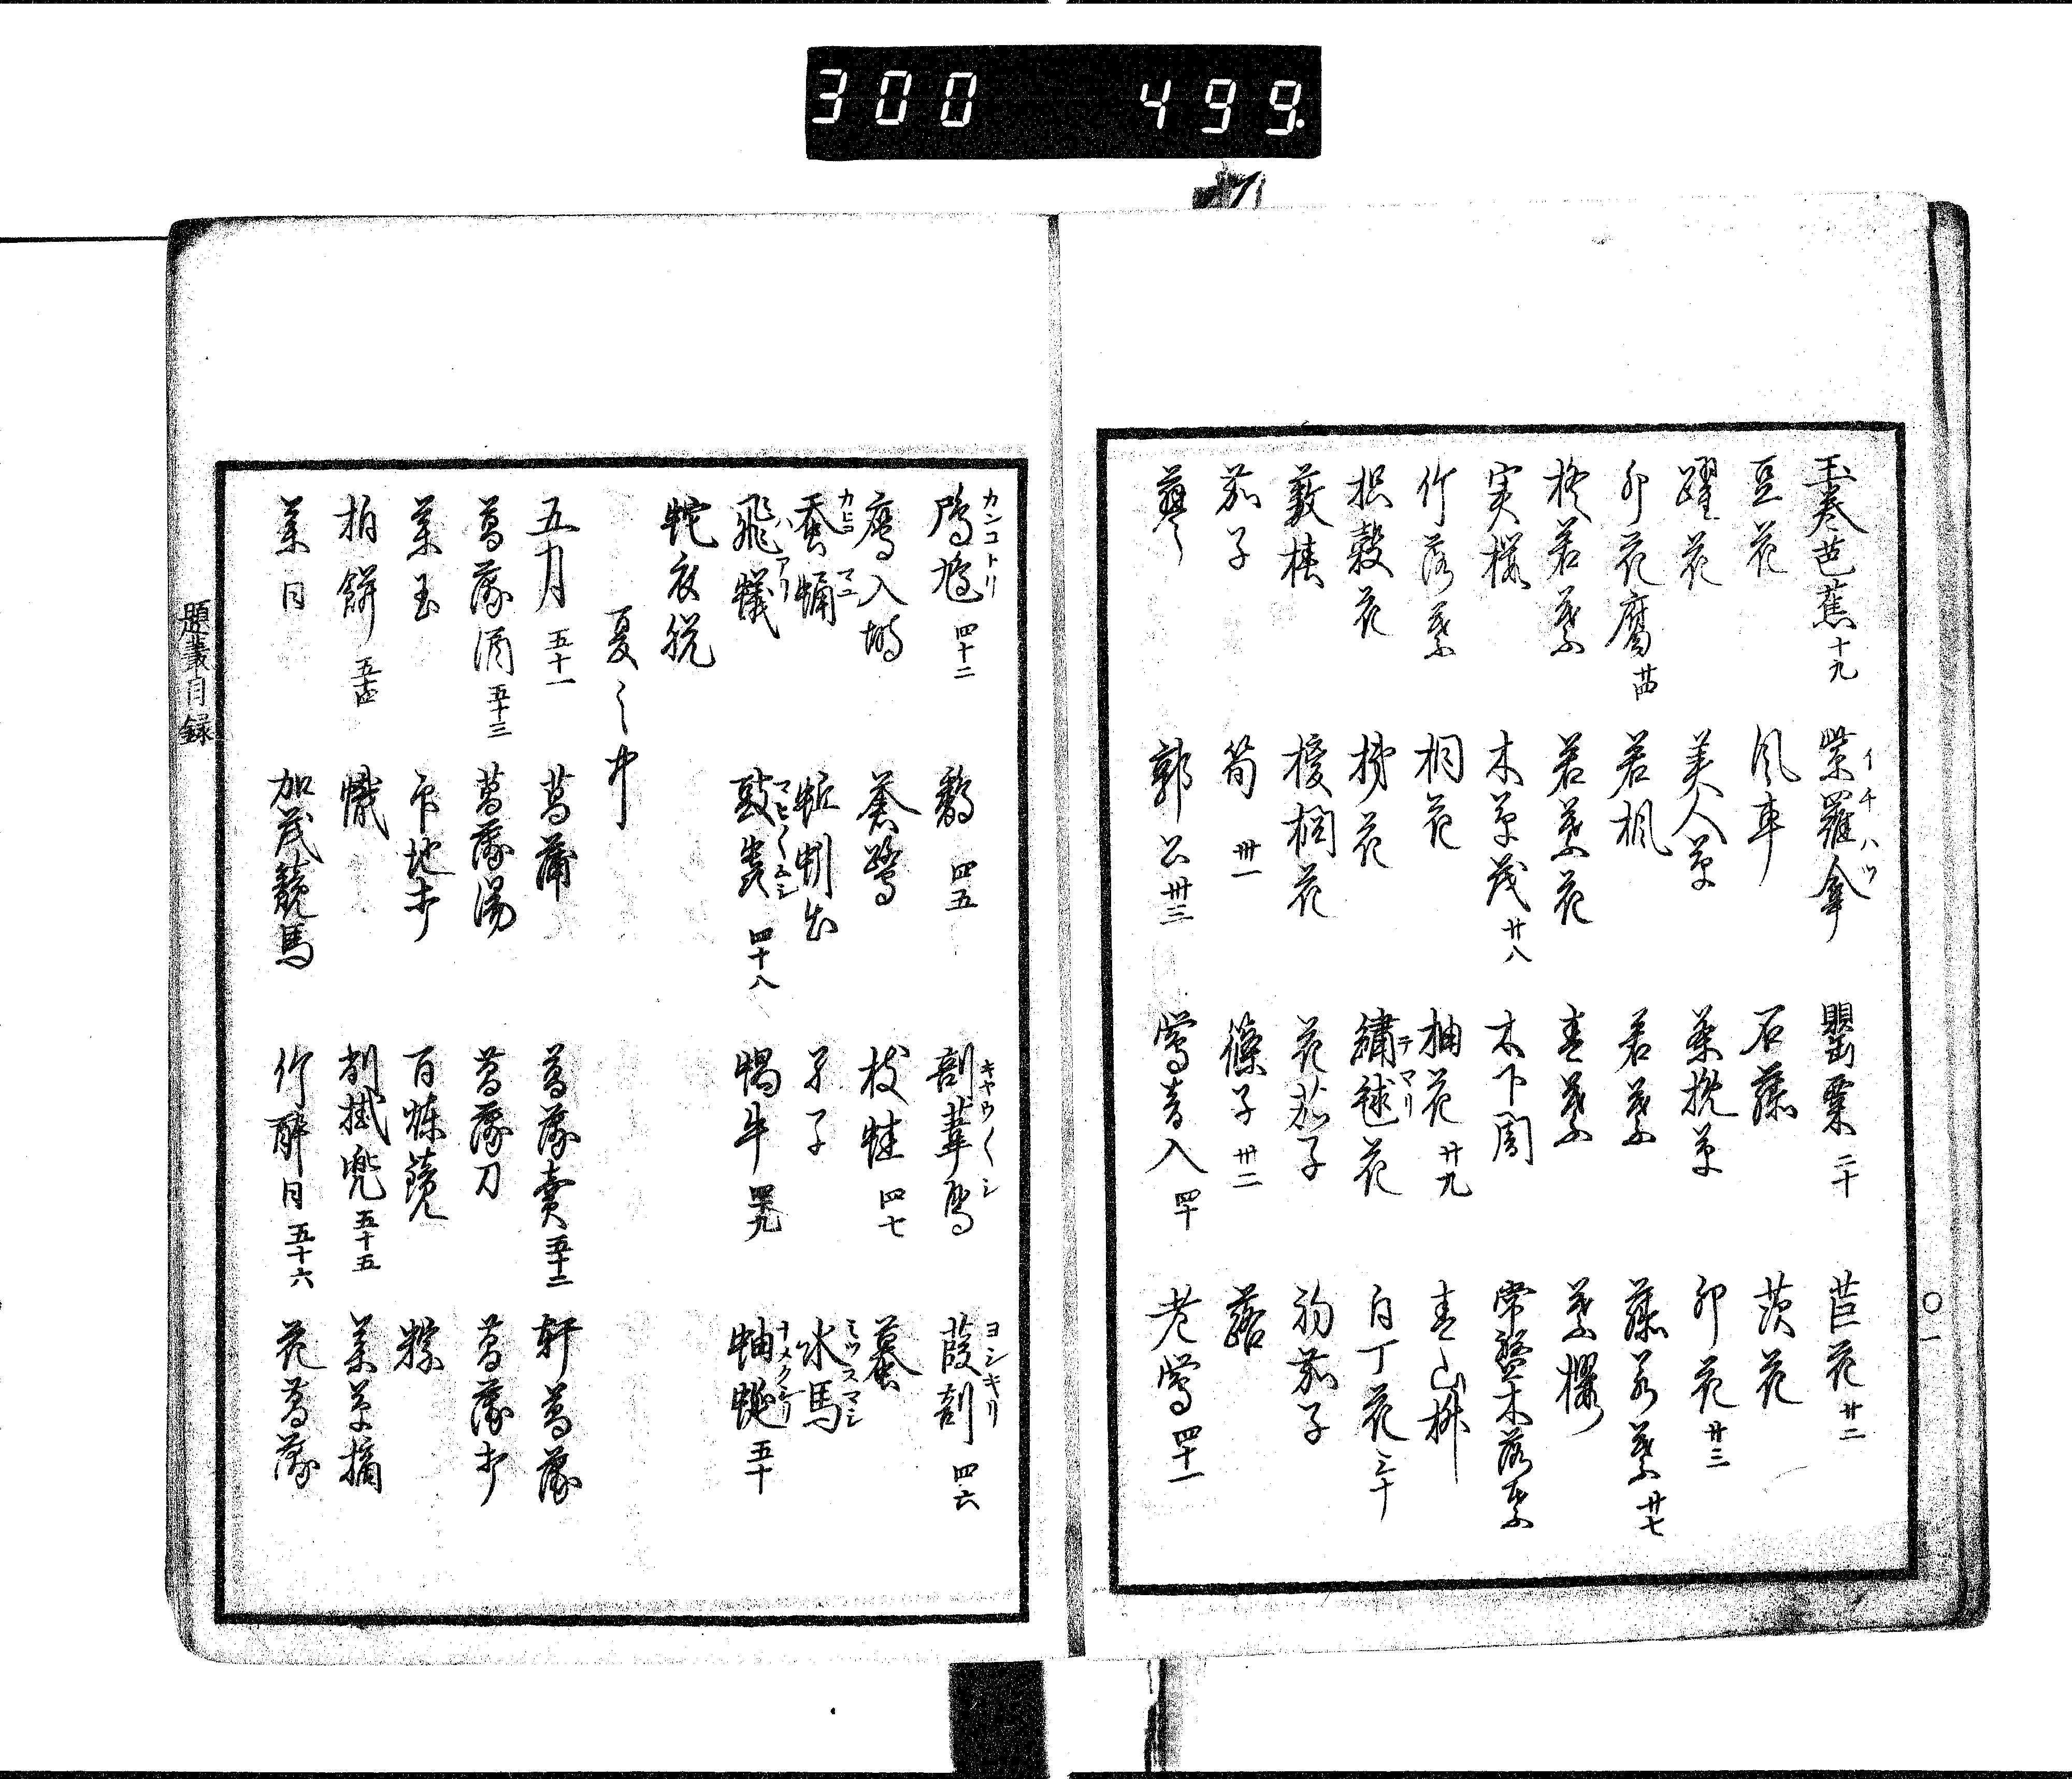 300 499.
玉巻芭蕉 十九 紫羅傘 イチハツ 罌粟 二十 苣花 廿二
豆花 風車 石藤 茨花
躍花 美人草 葉挽草 卯花 廿三
卯花腐 廿四 若楓 若葉 藤若葉 廿七
柊若葉 若葉花 青葉 葉櫻
実櫻 木草茂 廿八 木下闇 常盤木落葉
竹落葉 桐花 柚花 廿九 青山椒
枳殻花 樗花 繍毬花 テマリ 白丁花 三十
藪椿 椶櫚花 花茄子 初茄子
茄子 筍 卅一 篠子 卅二 蕗
郭公 卅三 鶯音入 四十 老鶯 四十一
鳲鳩 カンコトリ 四十二 鷭 四五 剖葦鳥 キヤウ〱シ 葭剖 ヨシキリ 四六
鷹入塒 蒼鷺 枝蛙 四七 蟇
蚕蛹 カヒコ マユ 蚯蚓出 孑孑 水馬 ミツスマシ
飛蟻 ハアリ 鼓虫 マヒ〱ムシ 四十八 蝸牛 四十九 蛞蝓 ナメクジリ 五十
蛇衣脱
夏之中
五月 五十一 菖蒲 菖蒲賣 五十二 軒菖蒲
菖蒲酒 五十三 菖蒲湯 菖蒲刀 菖蒲打
薬玉 印地打 百煉鏡 粽
柏餅 五十四 幟 削掛兜 五十五 薬草摘
薬日 加茂競馬 竹酔日 五十六 花菖蒲
題叢目録
〇一